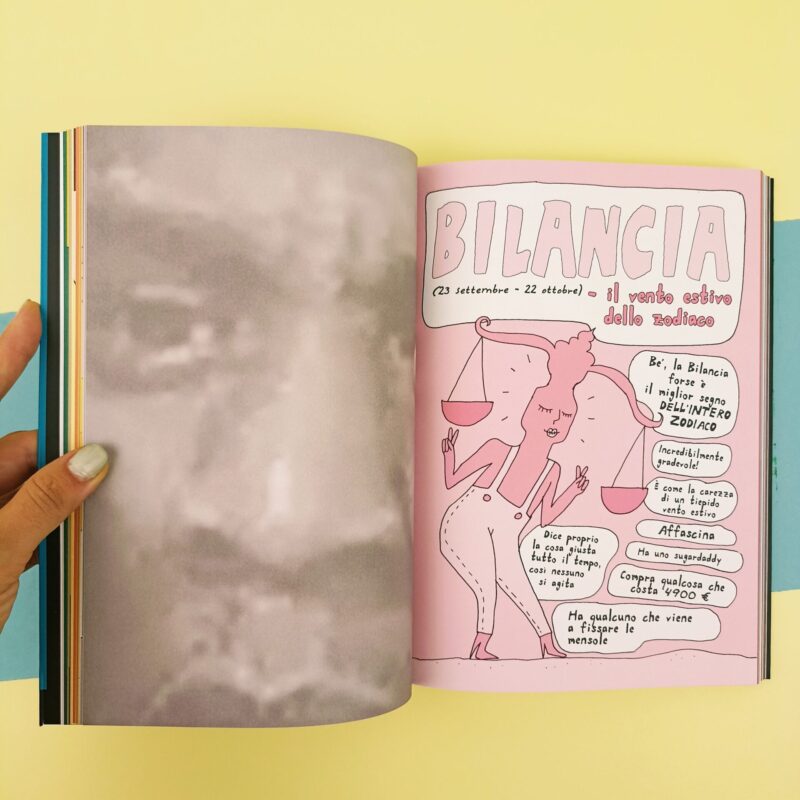 BILANCIA
(23 settembre - 22 ottobre) - il vento estivo
dello zodiaco
Be', la Bilancia
forse è
il miglior segno
DELL'INTERO
ZODIACO
Incredibilmente
gradevole!
È come la carezza
di un tiepido
vento estivo
Affascina
Dice proprio
la cosa giusta
tutto il tempo,
così nessuno
si agita
Ha uno sugardaddy
Compra qualcosa che
costa 4900 €
Ha qualcuno che viene
a fissare le
mensole